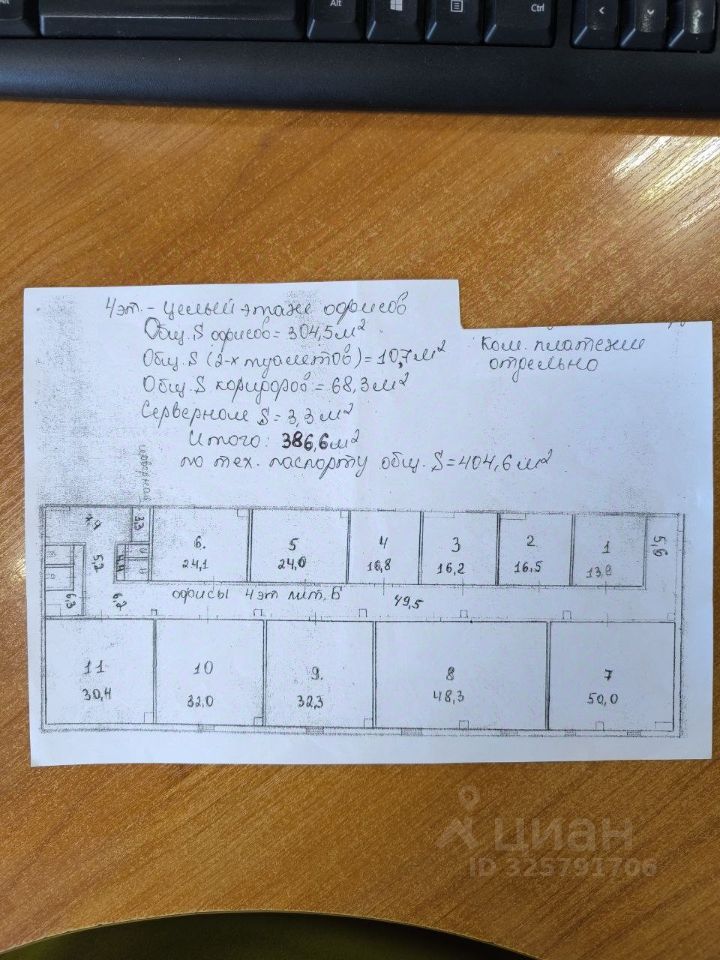 Alt
Ctrl
4 эт. - целый этаж офисов
Общ. S офисов = 304,5 м²
Общ. S (2-х туалетов) = 10,7 м²
Общ. S коридоров = 68,3 м²
Серверной S = 3,3 м²
Итого: 386,6 м²
по тех. паспорту общ. S = 404,6 м²
Ком. платежи
отдельно
3,3
5,2
6,3
6,2
6.
24,1
5
24,0
4
16,8
3
16,2
2
16,5
1
5,6
офисы 4 эт лит. Б
49,5
11
30,4
10
32,0
9.
32,3
8
48,3
7
50,0
циан
ID 325791706